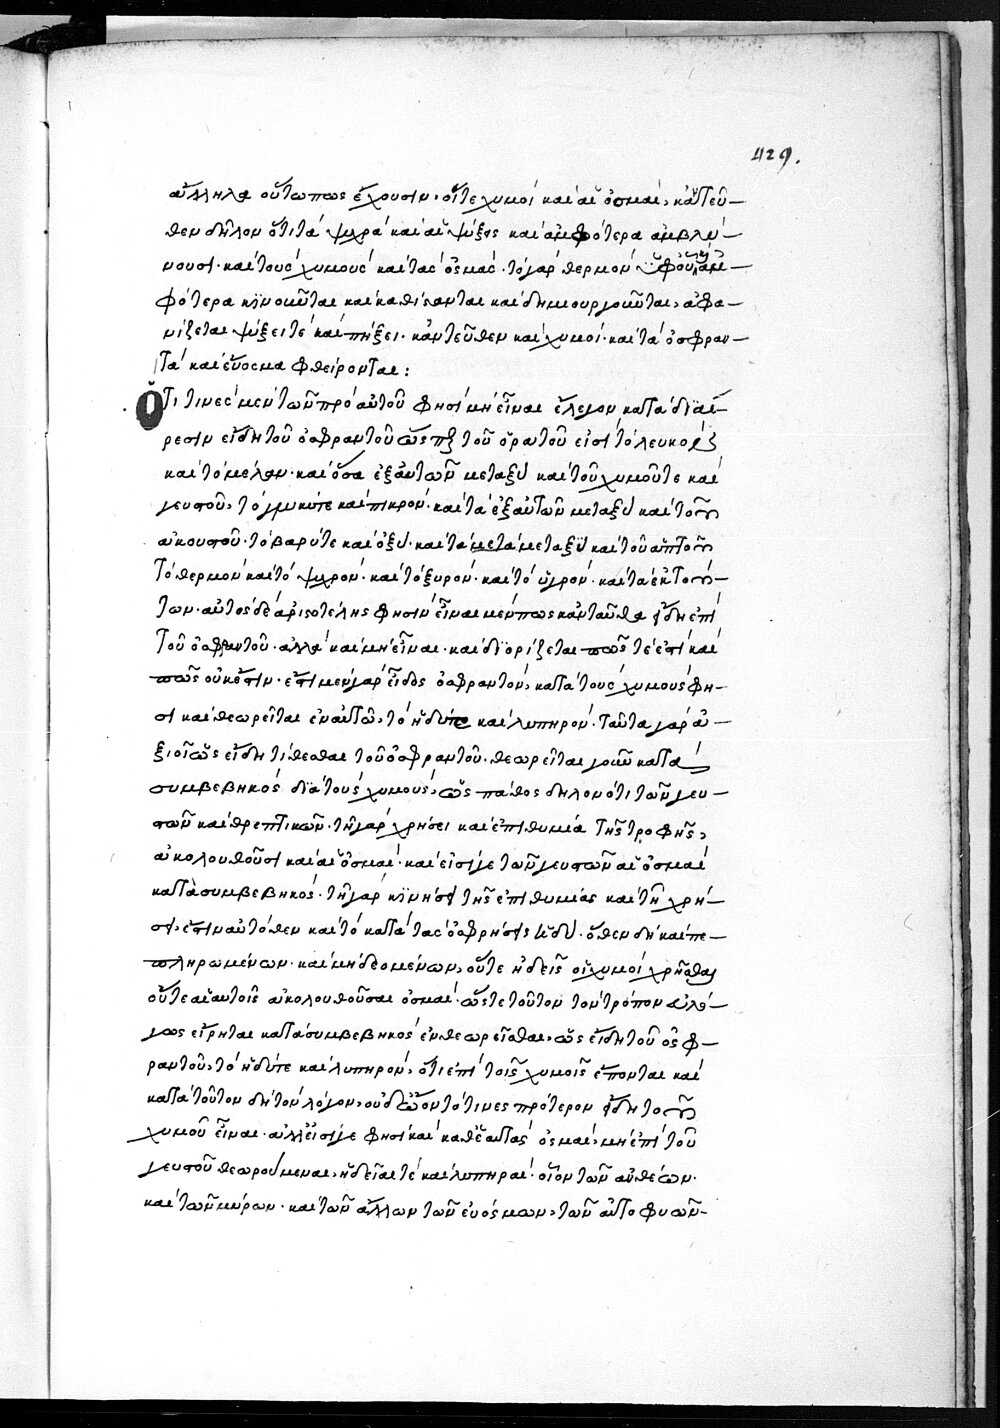 429.
ἄλληλα οὕτω πως ἔχουσιν, οἵ τε χυμοὶ καὶ αἱ ὀσμαὶ, κἀντεῦ-
θεν δῆλον ὅτι τὰ ψυχρὰ καὶ αἱ ψύξεις καὶ ἀμφότερα ἀμβλύ-
νουσι· καὶ τοὺς χυμοὺς καὶ τὰς ὀσμάς· τὸ γὰρ θερμὸν ὑφ' οὗ ἀμ-
φότερα κινοῦνται καὶ καθίστανται καὶ δημιουργοῦνται, ἀφα-
νίζεται ψύξει τὲ καὶ πήξει· κἀντεῦθεν καὶ χυμοὶ· καὶ τὰ ὀσφραν-
τὰ καὶ εὔοσμα φθείρονται:
Ὅτι τινὲς μὲν τῶν πρὸ αὐτοῦ φησὶ μὴ εἶναι ἔλεγον κατὰ διαί-
ρεσιν εἴδη τοῦ ὀσφραντοῦ ὥσπερ τοῦ ὁρατοῦ εἰσὶ τὸ λευκὸν
καὶ τὸ μέλαν· καὶ ὅσα ἐξ αὐτῶν μεταξὺ καὶ τοῦ χυμοῦ τε καὶ
γευστοῦ, τὸ γλυκύ τε καὶ πικρόν· καὶ τὰ ἐξ αὐτῶν μεταξὺ καὶ τοῦ
ἀκουστοῦ· τὸ βαρύ τε καὶ ὀξὺ· καὶ τὰ μετὰ μεταξὺ καὶ τοῦ ἁπτοῦ
τὸ θερμὸν καὶ τὸ ψυχρόν· καὶ τὸ ξηρόν· καὶ τὸ ὑγρόν· καὶ τὰ ἐκ τού-
των· αὐτὸς δὲ ἀριστοτέλης φησὶν εἶναι μέν πως κἀνταῦθα εἴδη ἐπὶ
τοῦ ὀσφραντοῦ· ἀλλὰ καὶ μὴ εἶναι· καὶ διορίζεται πῶς τὲ ἐστὶ καὶ
πῶς οὐκ ἔστιν· ἔστι μὲν γὰρ εἶδος ὀσφραντὸν, κατὰ τοὺς χυμοὺς φη-
σι καὶ θεωρεῖται ἐν αὐτῶ, τὸ ἡδύ τε καὶ λυπηρόν· ταῦτα γὰρ ἀ-
ξιοῖ ὡς εἴδη τίθεσθαι τοῦ ὀσφραντοῦ· θεωρεῖται γοῦν κατὰ
συμβεβηκὸς διὰ τοὺς χυμοὺς, ὡς πάθος δηλονότι τῶν γευ-
στῶν καὶ θρεπτικῶν· τῆ γὰρ χρήσει καὶ ἐπιθυμία τῆς τροφῆς,
ἀκολουθοῦσι καὶ αἱ ὀσμαὶ· καὶ εἰσί γε τῶν γευστῶν αἱ ὀσμαὶ
κατὰ συμβεβηκός· τῆ γὰρ κινήσει τῆς ἐπιθυμίας καὶ τῆ χρή-
σει, ἔστιν αὐτόθεν καὶ τὸ κατὰ τὰς ὀσφρήσεις ἡδύ· ὅθεν δὴ καὶ πε-
πληρωμένων· καὶ μὴ δεομένων, οὔτε ἡδεῖς οἱ χυμοὶ χρῆσθαι
οὔτε αἱ αὐτοῖς ἀκολουθοῦσαι ὀσμαί· ὥστε τοῦτον τὸν τρόπον εὐλό-
γως εἴρηται κατὰ συμβεβηκὸς ἐνθεωρεῖσθαι, ὡς εἴδη τοῦ ὀσφ-
ραντοῦ, τὸ ἡδύ τε καὶ λυπηρὸν, ὅτι ἐπὶ τοῖς χυμοῖς ἕπονται καὶ
κατὰ τοῦτον δὴ τὸν λόγον, οὐδ' ὧν τό τινες πρότερον εἴδη τοῦ
χυμοῦ εἶναι· ἀλλ' εἰσί γε φησὶ καὶ καθ' ἑαυτὰς ὀσμαὶ, μὴ ἐπὶ τοῦ
γευστοῦ θεωρούμεναι, ἡδεῖαι τὲ καὶ λυπηραὶ· οἷον τῶν ἀνθέων·
καὶ τῶν μύρων· καὶ τῶν ἄλλων τῶν εὐόσμων, τῶν αὐτοφυῶν-